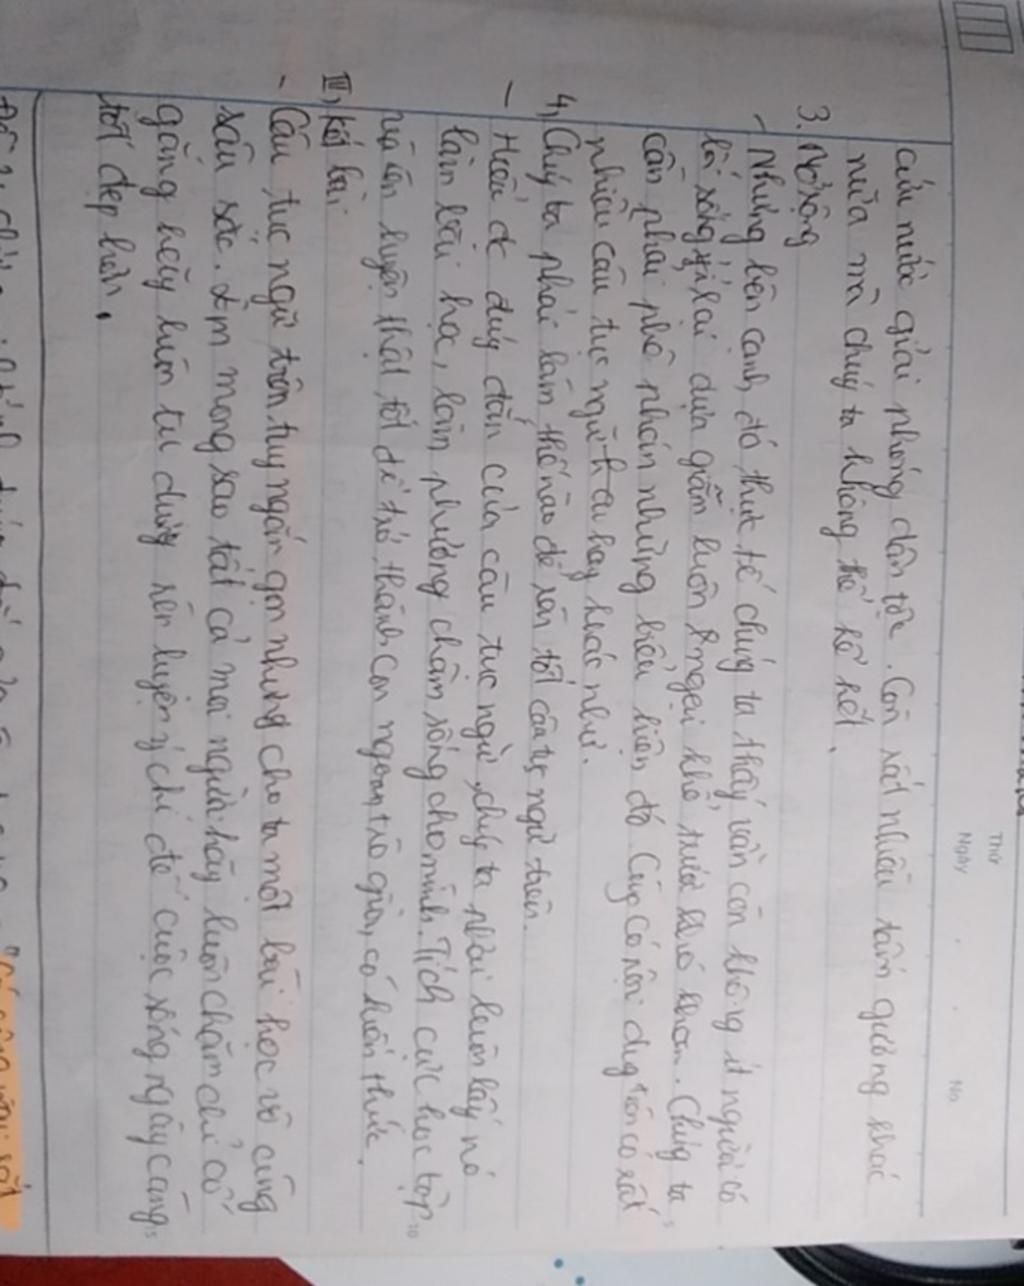 Thứ
Ngày . . No
cứu nước giải phóng dân tộc. Còn rất nhiều tấm gương khác
nữa mà chúng ta không thể kể hết.
3. Mở rộng
- Nhưng bên cạnh đó, thực tế chúng ta thấy vẫn còn không ít người có
lối sống ỷ lại dựa giẫm luôn ngại khổ trước khó khăn. Chúng ta
cần phải phê phán những biểu hiện đó. Cùng có nội dung trên có rất
nhiều câu tục ngữ hay khác như.
4, Chúng ta phải làm thế nào để làm tốt câu tục ngữ trên.
- Hiểu đc đúng đắn của câu tục ngữ, chúng ta phải luôn lấy nó
làm bài học, làm phương châm sống cho mình. Tích cực học tập,
rèn luyện thật tốt để trở thành con ngoan, trò giỏi, có kiến thức.
III, Kết bài
- Câu tục ngữ trên tuy ngắn gọn nhưng cho ta một bài học vô cùng
sâu sắc. Em mong sao tất cả mọi người hãy luôn chăm chỉ cố
gắng hãy luôn tu dưỡng rèn luyện ý chí để cuộc sống ngày càng
tốt đẹp hơn.